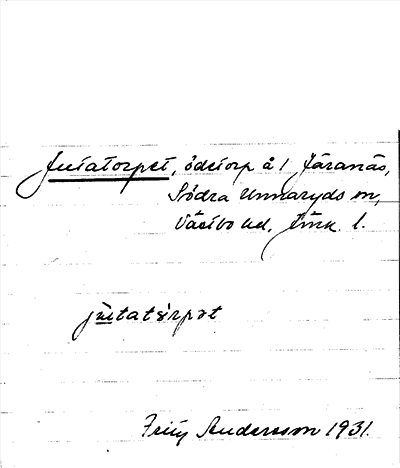 Jutatorpet, ödetorp å 1 Järanäs,
Södra Unnaryds sn,
Västbo hd, Jönk. l.
jutatårpət
Fritz Andersson 1931.